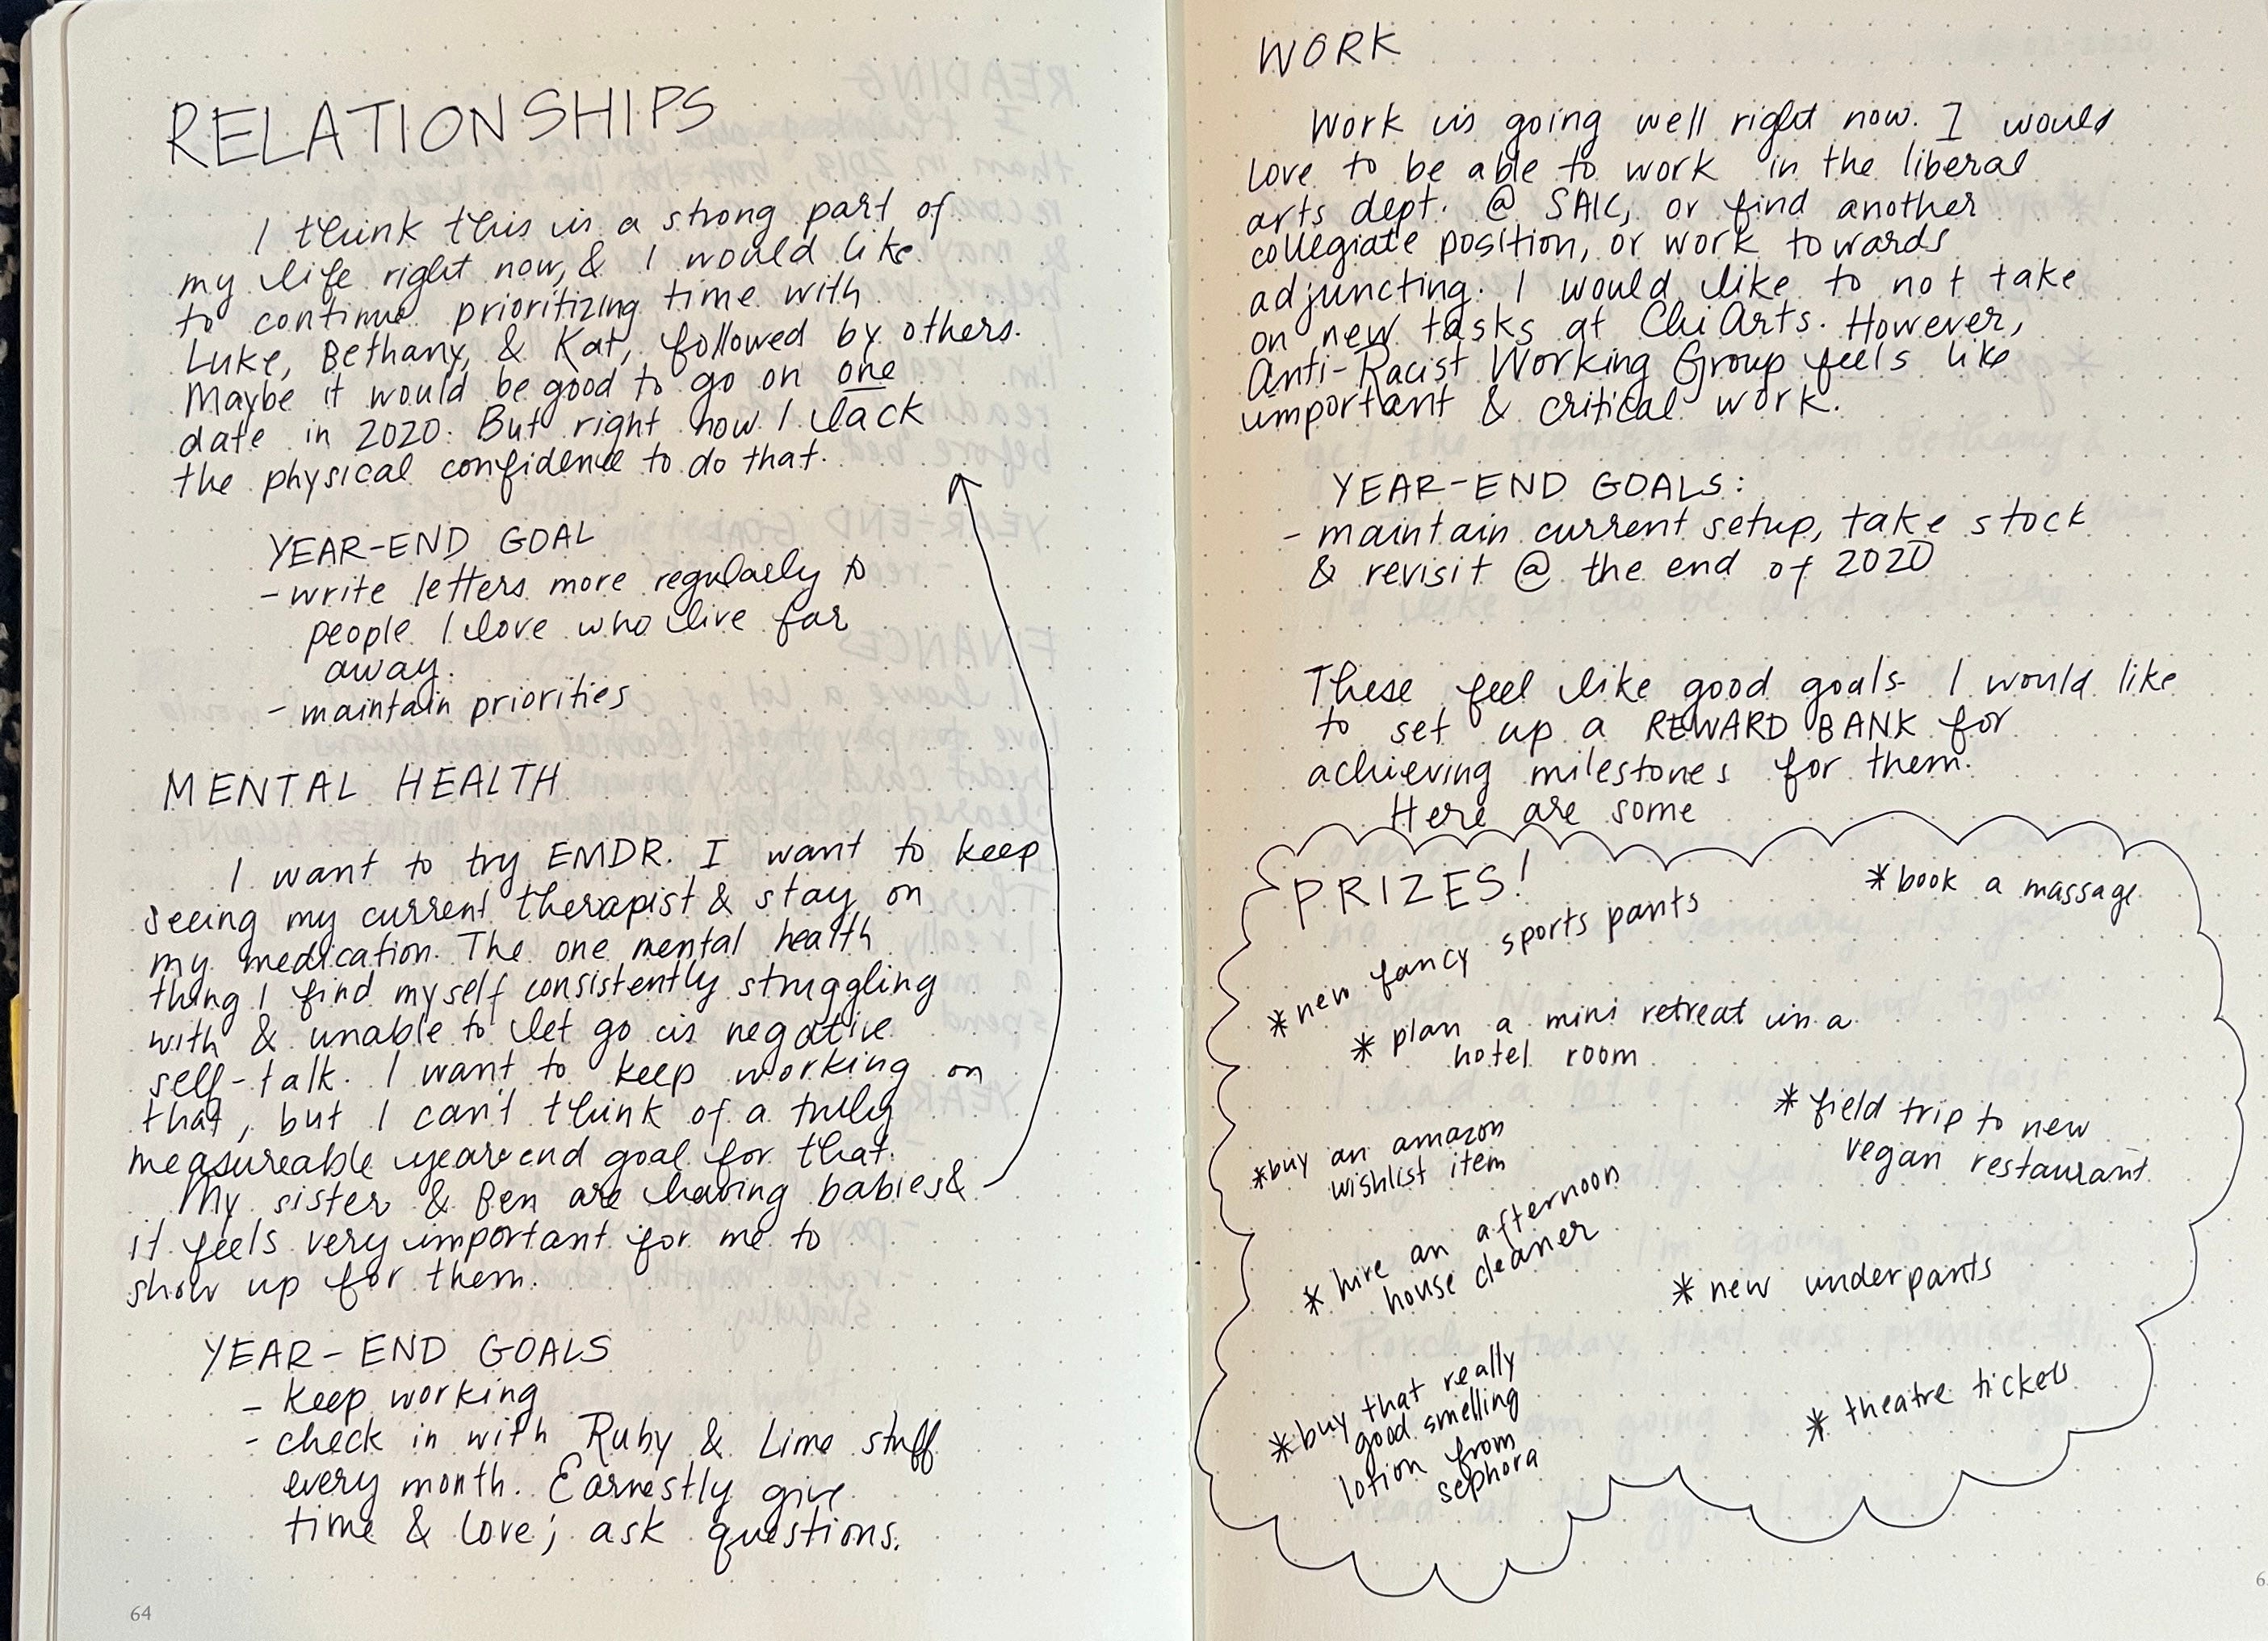 RELATIONSHIPS
I think this is a strong part of
my life right now, & I would like
to continue prioritizing time with
Luke, Bethany, & Kat, followed by others.
Maybe it would be good to go on one
date in 2020. But right now I lack
the physical confidence to do that.
YEAR-END GOAL
- write letters more regularly to
people I love who live far
away.
- maintain priorities
MENTAL HEALTH
I want to try EMDR. I want to keep
seeing my current therapist & stay on
my medication. The one mental health
thing I find myself consistently struggling
with & unable to let go is negative
self-talk. I want to keep working on
that, but I can't think of a truly
measureable year-end goal for that.
My sister & Ben are having babies &
it feels very important for me to
show up for them.
YEAR-END GOALS
- keep working
- check in with Ruby & Lime stuff
every month. Earnestly give
time & love; ask questions.
64
WORK
Work is going well right now. I would
love to be able to work in the liberal
arts dept. @ SAIC, or find another
collegiate position, or work towards
adjuncting. I would like to not take
on new tasks at ChiArts. However,
Anti-Racist Working Group feels like
important & critical work.
YEAR-END GOALS:
- maintain current setup, take stock
& revisit @ the end of 2020
These feel like good goals. I would like
to set up a REWARD BANK for
achieving milestones for them.
Here are some
PRIZES!
* book a massage
* new fancy sports pants
* plan a mini retreat in a
hotel room
* field trip to new
vegan restaurant
* buy an amazon
wishlist item
* hire an afternoon
house cleaner
* new underpants
* buy that really
good smelling
lotion from
sephora
* theatre tickets